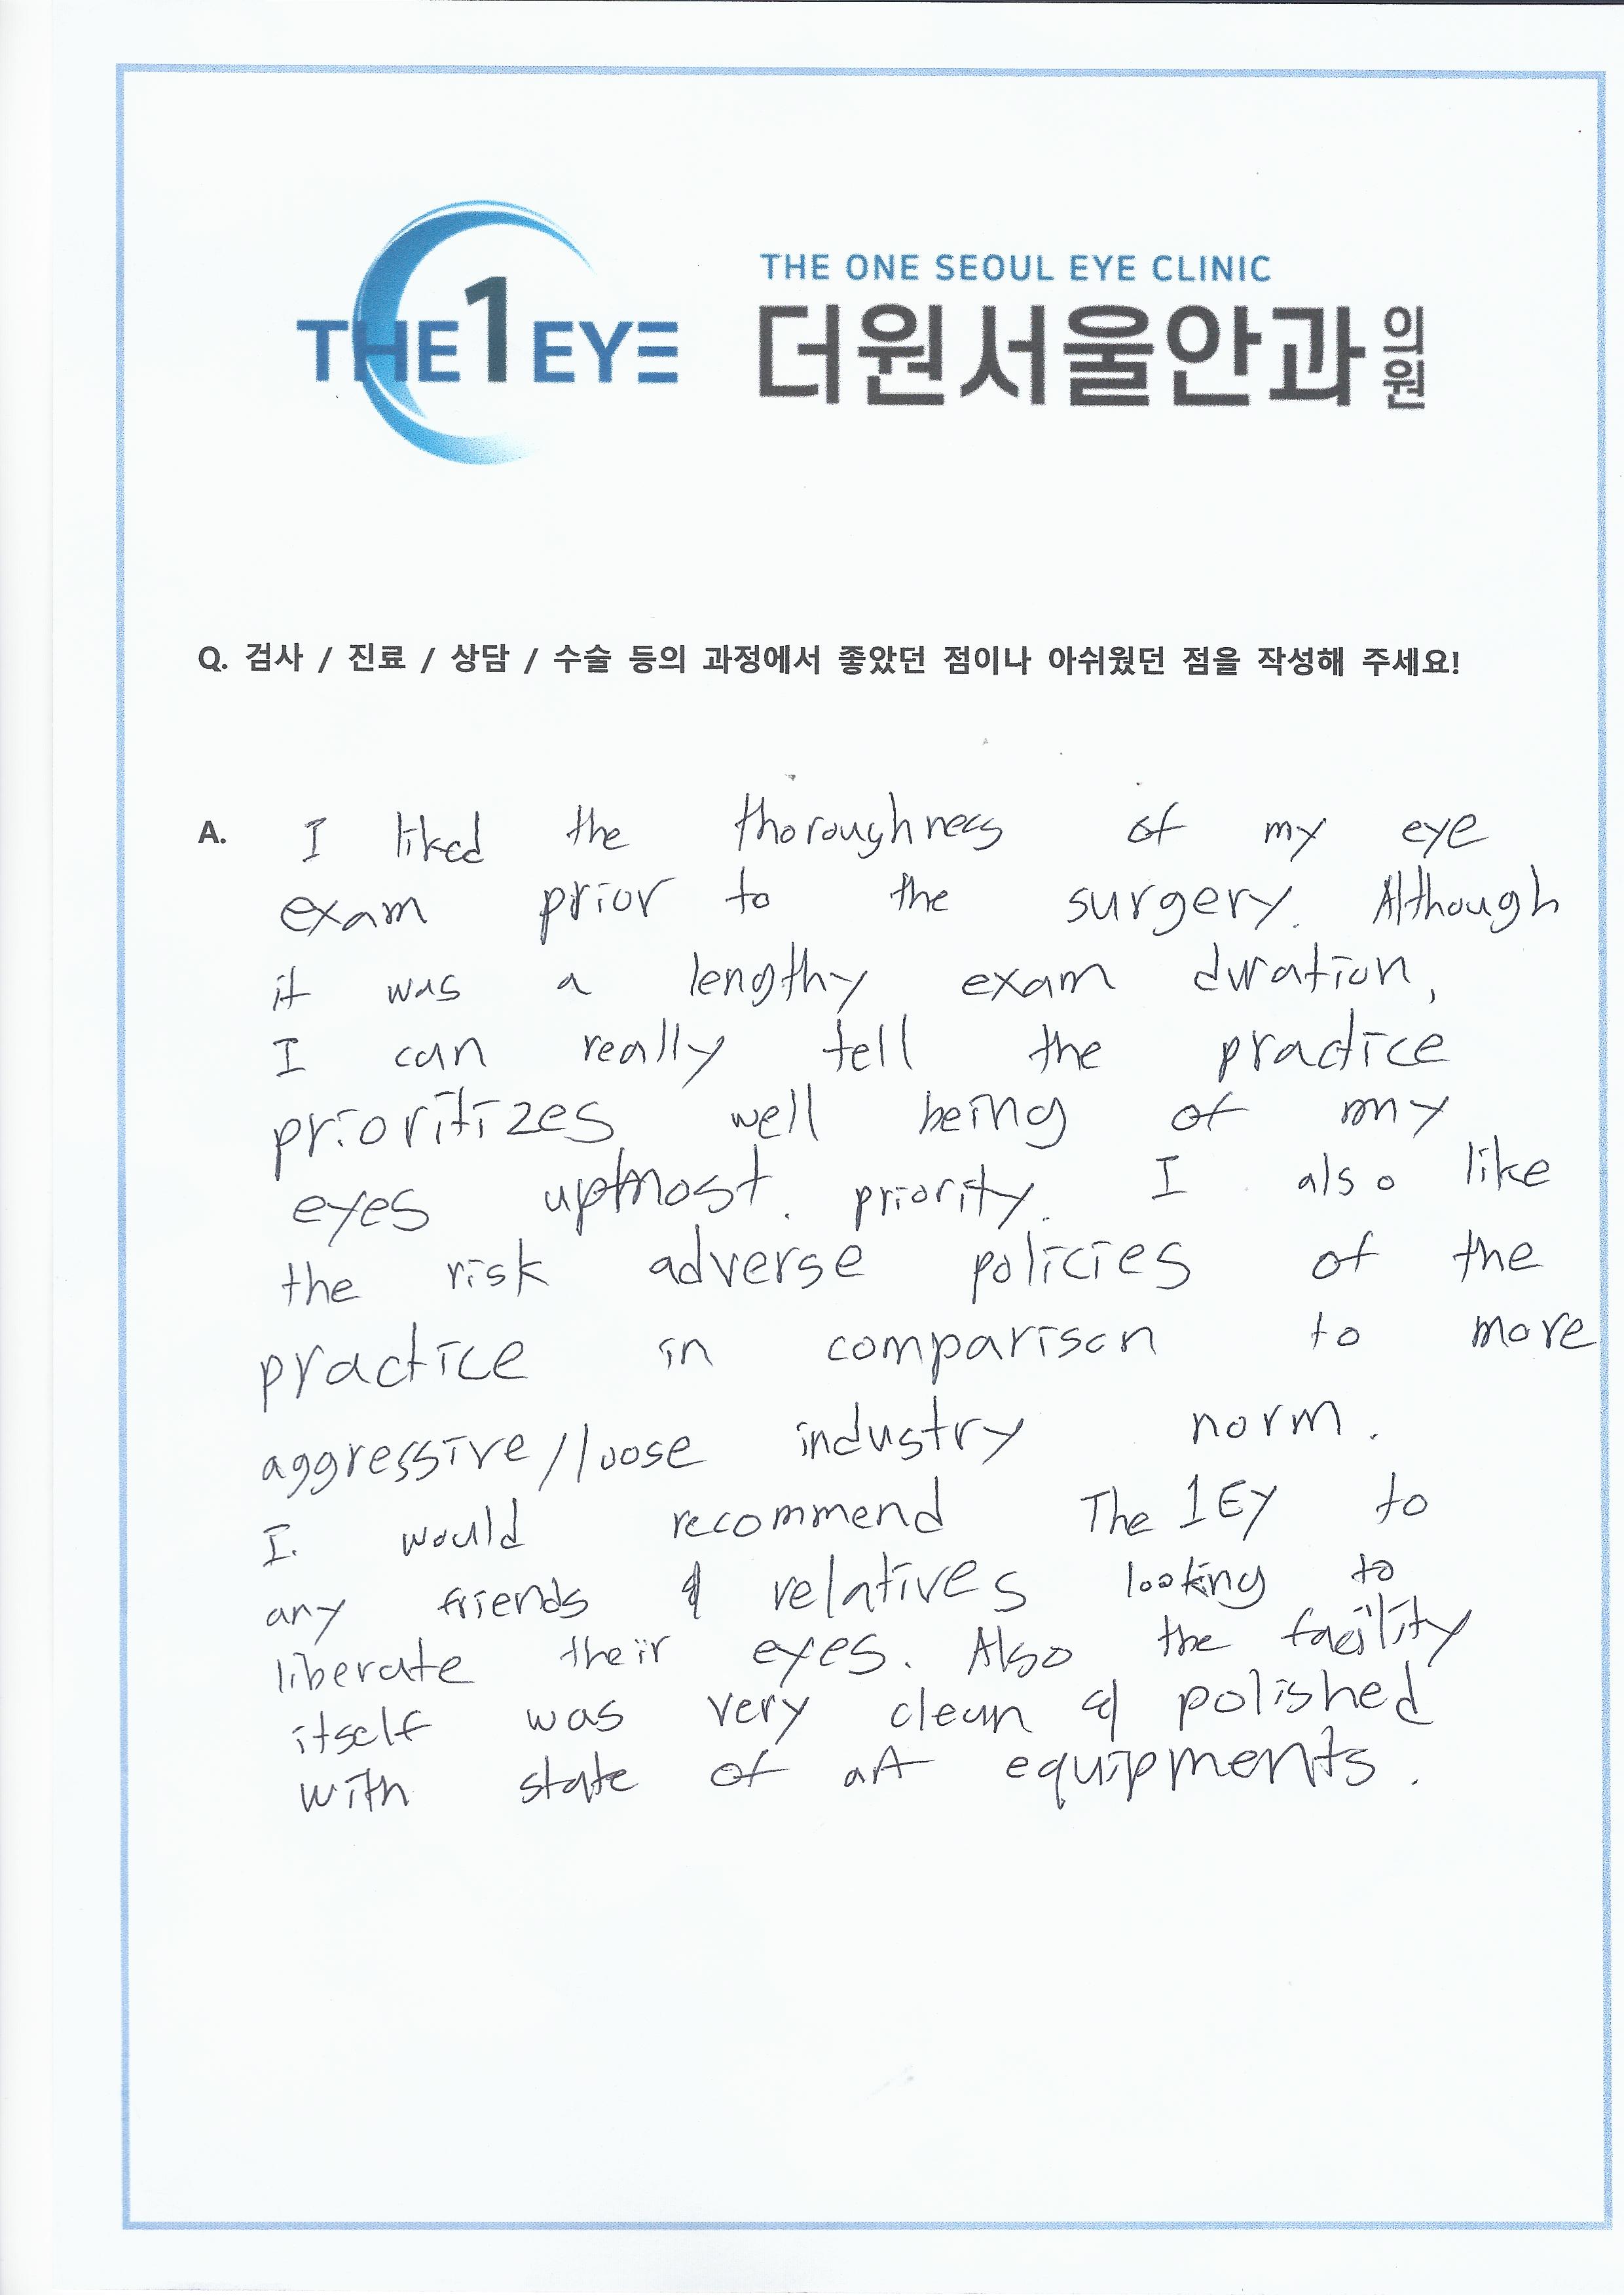 THE 1 EYE
THE ONE SEOUL EYE CLINIC
더원서울안과의원
Q. 검사 / 진료 / 상담 / 수술 등의 과정에서 좋았던 점이나 아쉬웠던 점을 작성해 주세요!
A. I liked the thoroughness of my eye
exam prior to the surgery. Although
it was a lengthy exam duration,
I can really tell the practice
prioritizes well being of my
eyes upmost. priority. I also like
the risk adverse policies of the
practice in comparison to more
aggressive/loose industry norm.
I. would recommend The 1EY to
any friends & relatives looking to
liberate their eyes. Also the facility
itself was very clean & polished
with state of art equipments.